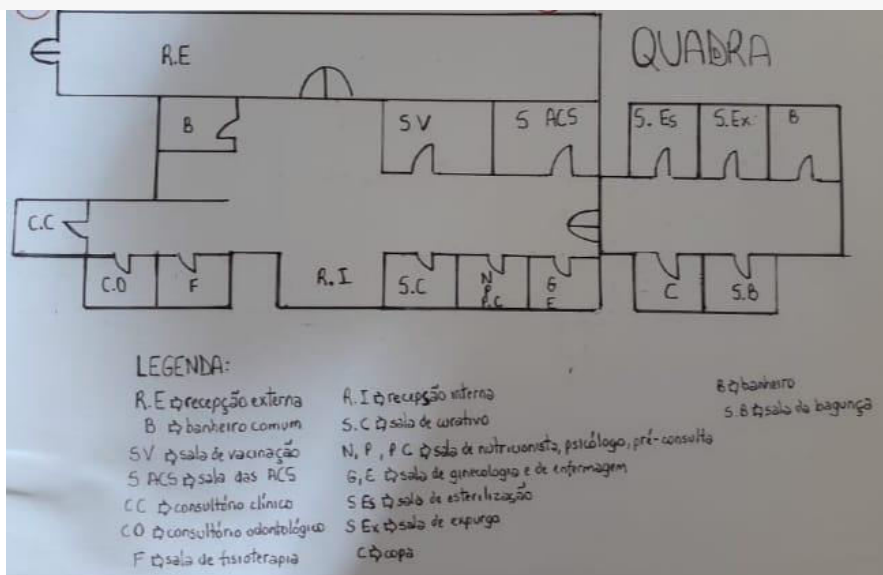 R.E
QUADRA
B
SV
S ACS
S. Es
S.Ex.
B
C.C
C.O
F
R.I
S.C
N
P
P.C
G
E
C
S.B
LEGENDA:
R.E ⇨ recepção externa
B ⇨ banheiro comum
SV ⇨ sala de vacinação
S ACS ⇨ sala das ACS
CC ⇨ consultório clínico
CO ⇨ consultório odontológico
F ⇨ sala de fisioterapia
R.I ⇨ recepção interna
S.C ⇨ sala de curativo
N, P, PC ⇨ sala de nutricionista, psicólogo, pré-consulta
G, E ⇨ sala de ginecologia e de enfermagem
S Es ⇨ sala de esterilização
S Ex ⇨ sala de expurgo
C ⇨ copa
B ⇨ banheiro
S.B ⇨ sala da bagunça